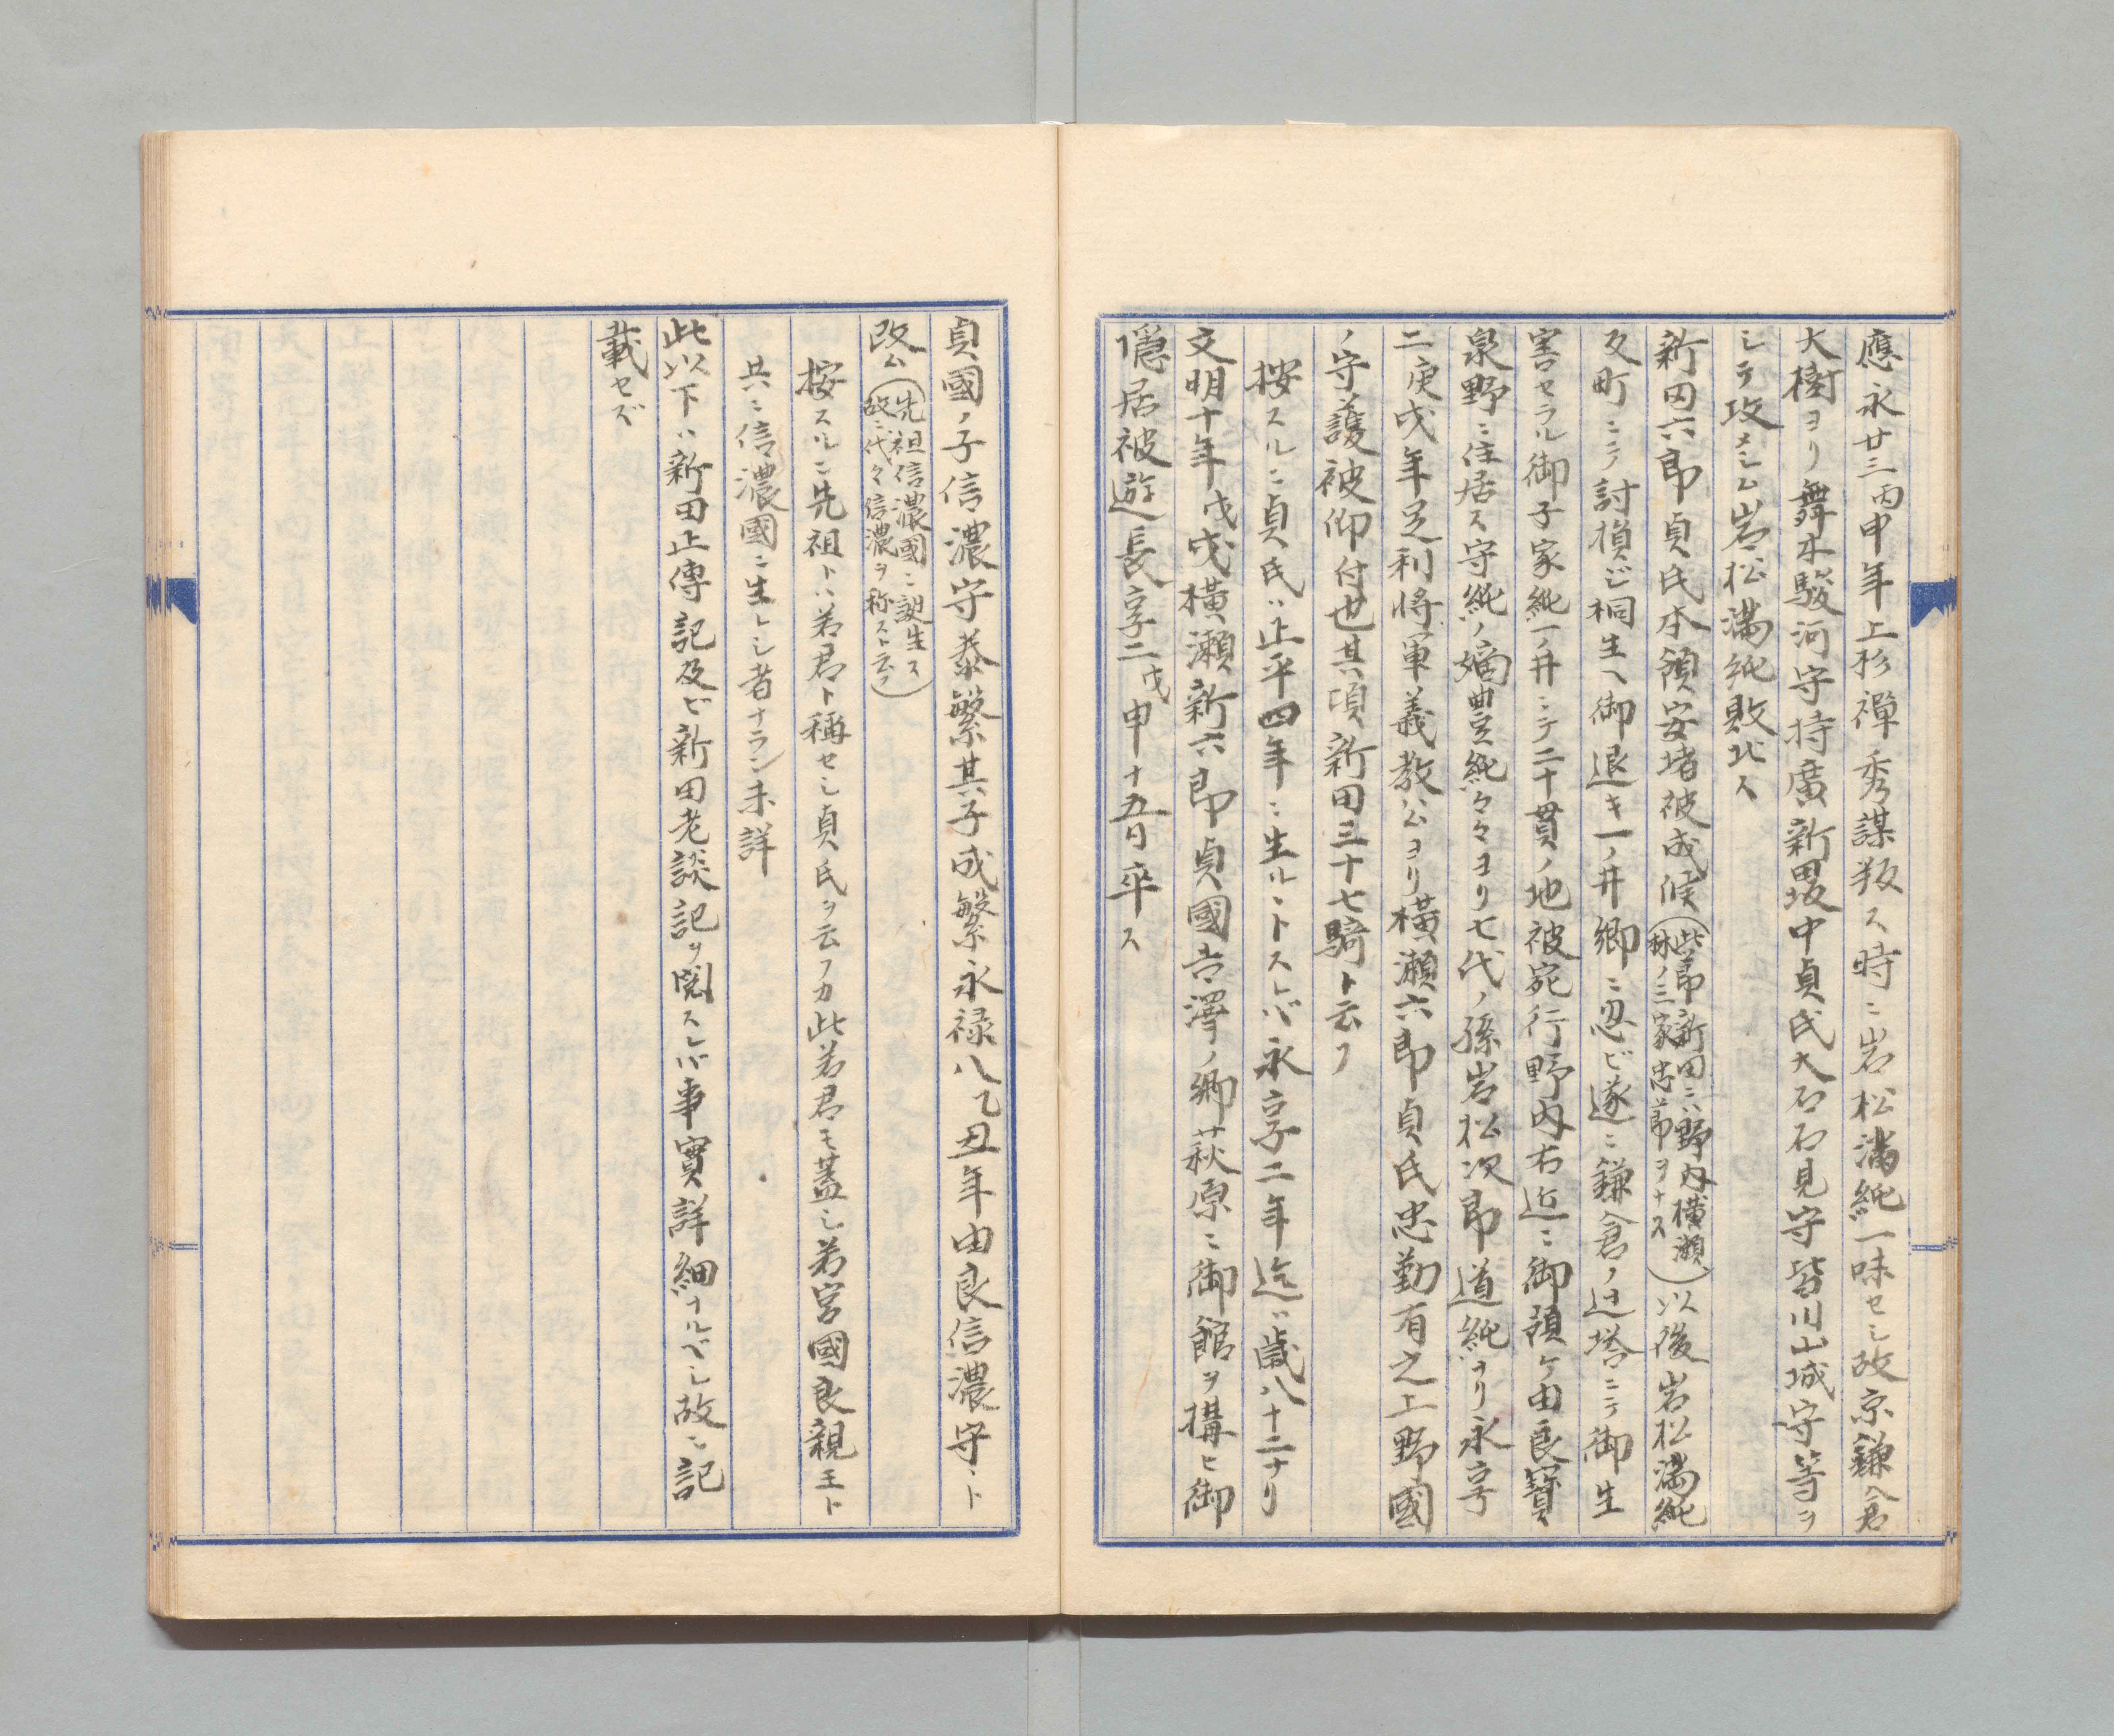 應永廿三丙申年上杉禪秀謀叛ス時ニ岩松満純一味セシ故京鎌倉
大樹ヨリ舞木駿河守持廣新田中貞氏大石石見守皆川山城守等ヲ
シテ攻メシム岩松満純敗北ス
新田六郎貞氏本領安堵被成候(此節新田ニハ野内横瀬
林ノ三家忠節ヲナス)以後岩松満純
又町ニテ討損ジ桐生ヘ御退キ一ノ井郷ニ忍ビ遂ニ鎌倉ノ辻塔ニテ御生
害セラル御子家純一ノ井ニテ二十貫ノ地被宛行野内右近ニ御預ケ由良寳
泉野ニ住居ス守純ノ嫡豊純々々ヨリ七代ノ孫岩松次郎道純ナリ永享
二庚戌年足利将軍義教公ヨリ横瀬六郎貞氏忠勤有之上野國
ノ守護被仰付也其頃新田三十七騎ト云フ
按スルニ貞氏ハ正平四年ニ生ルヽトスレバ永享二年迄ハ歳八十二ナリ
文明十年戊戌横瀬新六郎貞國吉澤ノ郷萩原ニ御館ヲ構ヒ御
隱居被遊長享二戊申十五日卒ス
貞國ノ子信濃守泰繁其子成繁永禄八乙丑年由良信濃守ヽト
改ム(先祖信濃國ニ誕生ス
故ニ代々信濃ヲ称スト云フ)
按スルニ先祖トハ若君ト稱セシ貞氏ヲ云フカ此若君モ蓋シ若宮國良親王ト
共ニ信濃國ニ生レシ者ナラン未詳
此以下ハ新田正傳記及ビ新田老談記ヲ閲スレバ事實詳細ナルベシ故ニ記
載セズ